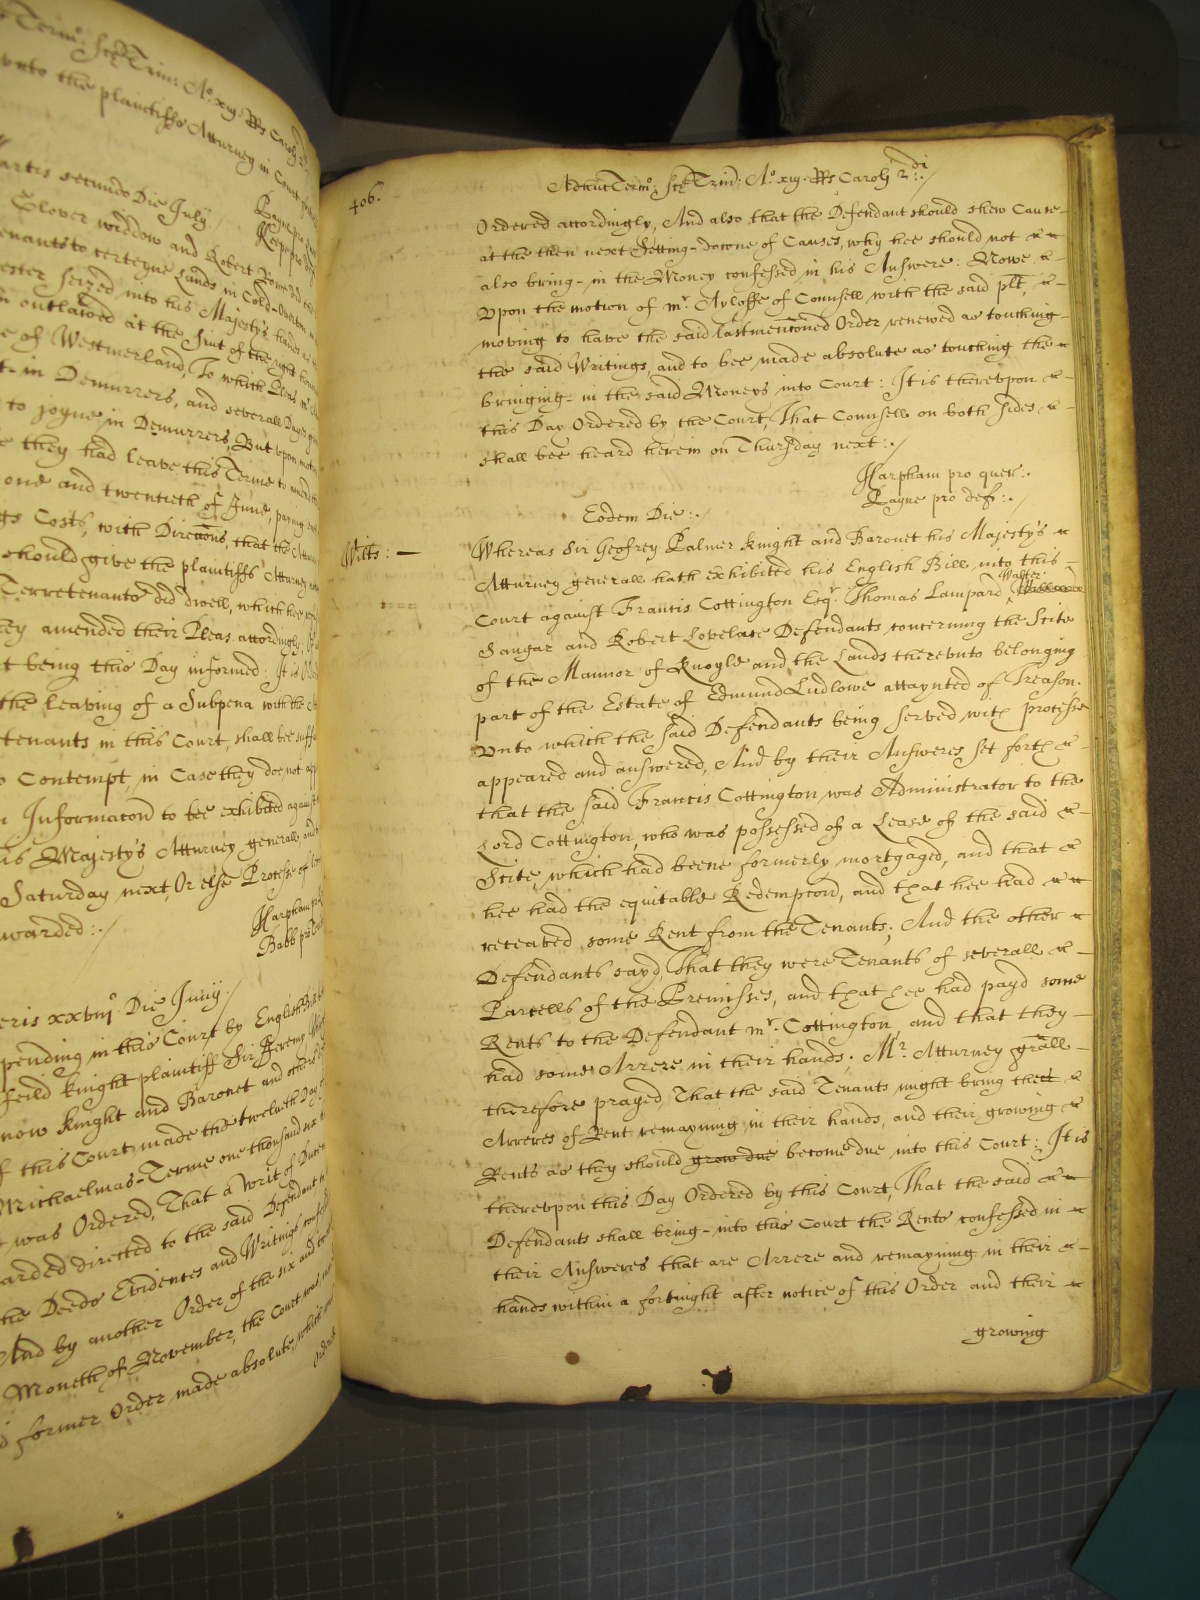 Termo: Scẽ Trin: Ao. xiij. RRs Caroli
vnto the plaintiffs Atturney in Court
Martis secundo Die July./
Payne pro
Keepe pro
Glover widdow and Robert
tenants to certeyne Lands in Cold-Overton
seized into his Majesty's hands
outlawed at the Suit of the right
of Westmerland, To which Pleas
in Demurrers, and severall Dayes
to joyne in Demurrers, But vpon
they had leave this Terme to amend
one and twentieth of June paying
Costs, with Direccons, that the
should give the plaintiffs Atturney
Terretenants did dwell, which hee
they amended their Pleas accordingly:
being this Day informed: It is
the leaving of a Subpena with the
tenants in this Court, shall bee
Contempt, in Case they doe not
Informacon to bee exhibited against
his Majesty's Atturney generall, and
Saturday next, Or else Processe of
awarded:./
Harpham
Babb pro
xxvııjo Die Junij./
pending in this Court by English Bill
feild knight plaintiff Sir Jeremy
now knight and Baronet and others
of this Court made the twelveth Day
Michaelmas-Terme one thousand six
was Ordered, That a Writ of
awarded directed to the said Defendant
the Deeds Evidences and Writings
And by another Order of the six and
Moneth of November, the Court was
former Order made absolute, which
Ordered
406.
Adhuc Termo: Scẽ Trin: Ao. xiij. RRs Caroli 2di:./
Ordered accordingly, And also that the Defendant should shew Cause-
at the then next Setting-downe of Causes, why hee should not
also bring-in the Money confessed in his Answere: Nowe
vpon the motion of mr. Ayloffe of Counsell with the said plt,
moving to have the said last mencioned Order renewed as touching-
the said Writings, and to bee made absolute as touching the
bringing-in the said Moneys into Court: It is therevpon
this Day Ordered by the Court, That Counsell on both sides
shall bee heard herein on Thursday next:./
Harpham pro quer:.
Payne pro def:./
Eodem Die:./
Wilts:—
Whereas Sir Geofrey Palmer knight and Baronet his Majesty's
Atturney generall hath exhibited his English Bill into this
Court against Francis Cottington Esqr. Thomas Lampard, Walter
Sangar and Robert Lovelace Defendants concerning the Scite
of the Mannor of Knoyle and the Lands therevnto belonging
part of the Estate of Edmund Ludlowe attaynted of Treason.
Vnto which the said Defendants being served with processe
appeared and answered, And by their Answeres set forth
that the said Francis Cottington was Administrator to the
Lord Cottington, who was possessed of a Lease of the said
Scite, which had beene formerly mortgaged, and that
hee had the equitable Redempcon, and that hee had
receaved some Rent from the Tenants; And the other
Defendants sayd, That they were Tenants of severall
Parcells of the Premisses, and that hee had payd some
Rents to the Defendant mr. Cottington, and that they
had some Arrere in their hands. Mr. Atturney grall
therefore prayed, That the said Tenants might bring the
Arreres of Rent remayning in their hands, and their growing
Rents as they should grow due become due into this Court: It is
therevpon this Day Ordered by this Court, That the said
Defendants shall bring-into this Court the Rents confessed in
their Answeres that are Arrere and remayning in their
hands within a fortnight after notice of this Order and their
growing